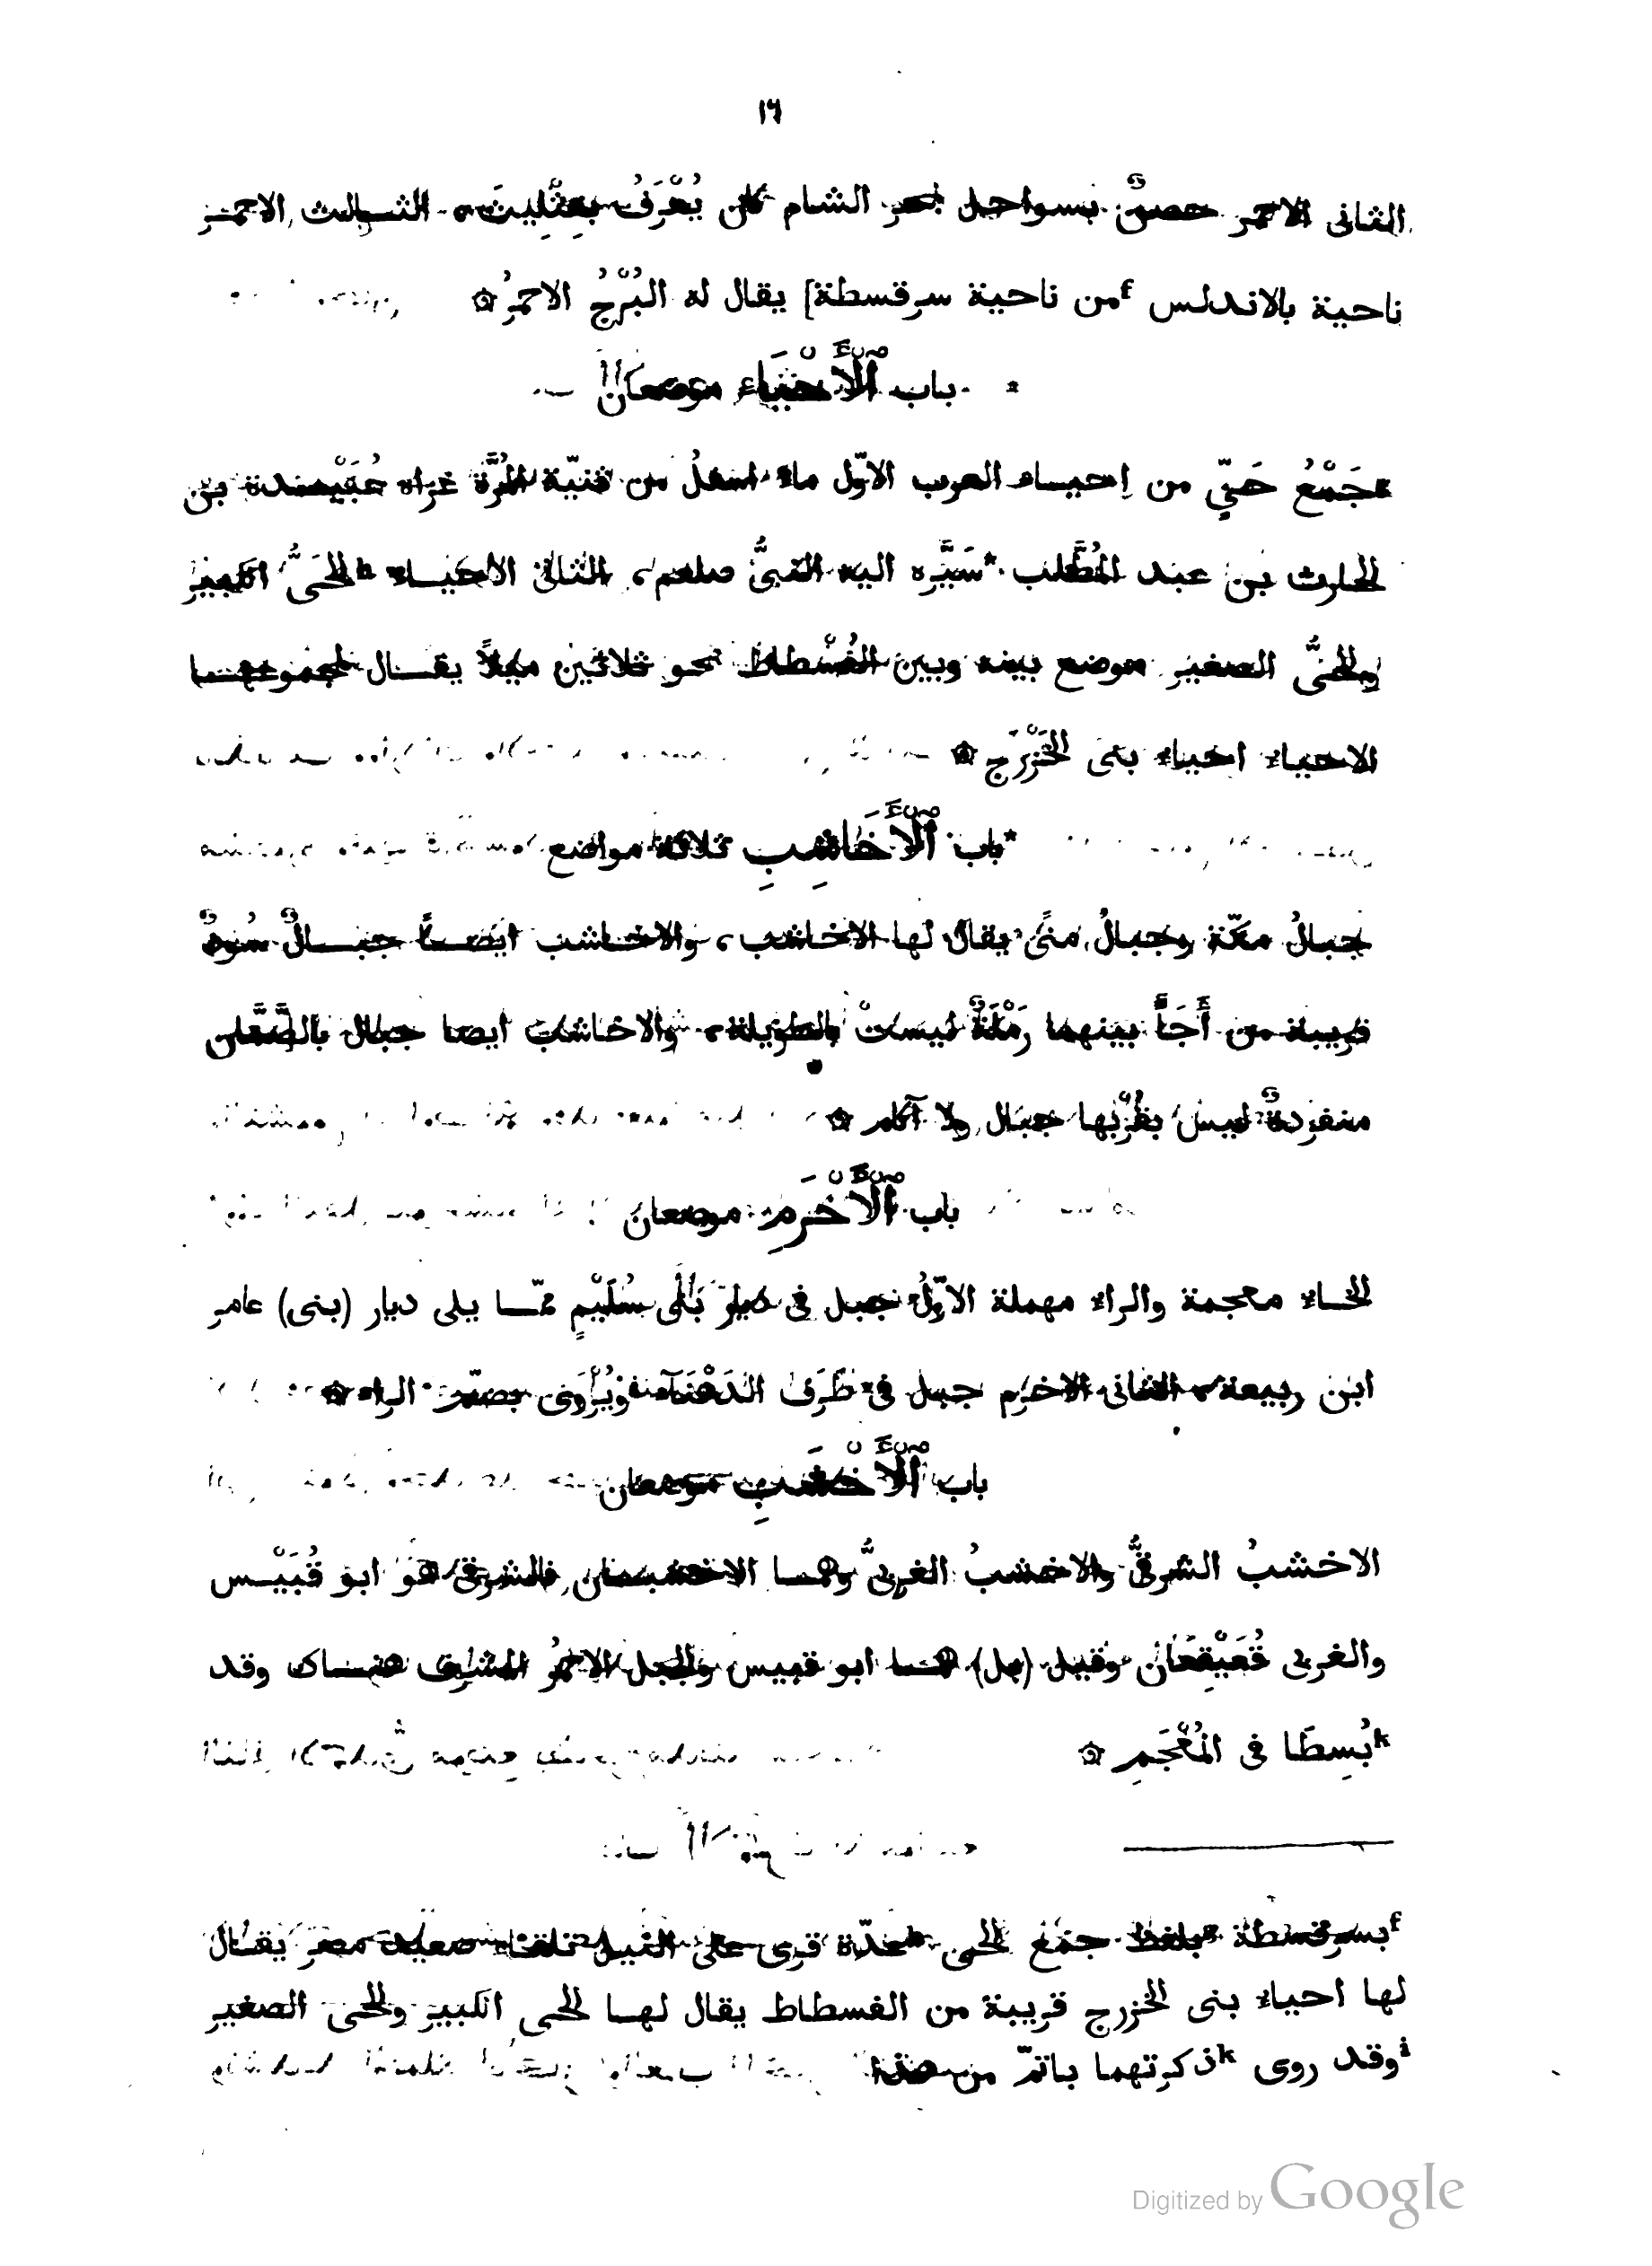 ١٦
الثانى الاحمر حصنٌ بسواحل بحر الشام كان يُعْرَفُ بعِثْلِيثَ، الثالث الاحمر
ناحية بالاندلس fمن ناحية سرقسطة] يقال له البُرْجُ الاحمرُ ۞
* باب اَلْأَحْيَاء موضعان
gجَمْعُ حَيٍّ من احياء العرب الاوّل ماء اسفلُ من ثنيّة المُرَّة غزاه عُبَيْدة بن
الحارث بن عبد المُطَّلب *سَيَّرَه اليه النبىُّ صلعم، الثانى الاحياء hالحَىُّ الكبير
والحىُّ الصغير موضع بينه وبين الفُسْطاط نحو ثلاثين ميلًا يقال لمجموعهما
الاحياء احياء بنى الخَزْرَج ۞
*باب اَلْأَخَاشِبِ ثلاثة مواضع
جبالُ مكّة وجبالُ مِنًى يقال لها الاخاشب، والاخاشب ايضاً جبالٌ سُودٌ
قريبة من أَجَأَ بينهما رَمْلَةٌ ليستْ بالطويلة، والاخاشب ايضا جبال بالصَّمَّان
منفردةٌ ليس بقُرْبها جبال ولا آكام ۞
باب اَلْأَخْرَمِ موضعان
الخاء معجمة والراء مهملة الاوّلُ جبل فى ديار بنى سُلَيْمٍ ممّا يلى ديار (بنى) عامر
ابن ربيعة، الثانى الاخرم جبل فى طَرَف الدَهْنَآء ويُرْوَى بضمّ الراء ۞
باب اَلْأَخْشَبِ موضعان
الاخشبُ الشرقىُّ والاخشبُ الغربىُّ وهما الاخشبان فالشرقى هو ابو قُبَيْس
والغربى قُعَيْقِعَان وقيل (بل) هما ابو قبيس والجبل الاحمرُ المشرف هناك وقد
kبُسِطَا فى المُعْجَمِ ۞
fبسرقسطة gبلفظ جمع الحى hعدّة قرى على النيل تلقاء صعيد مصر يقال
لها احياء بنى الخزرج قريبة من الفسطاط يقال لها الحى الكبير والحى الصغير
iوقد روى kذكرتهما باتمّ من هذا
Digitized by Google